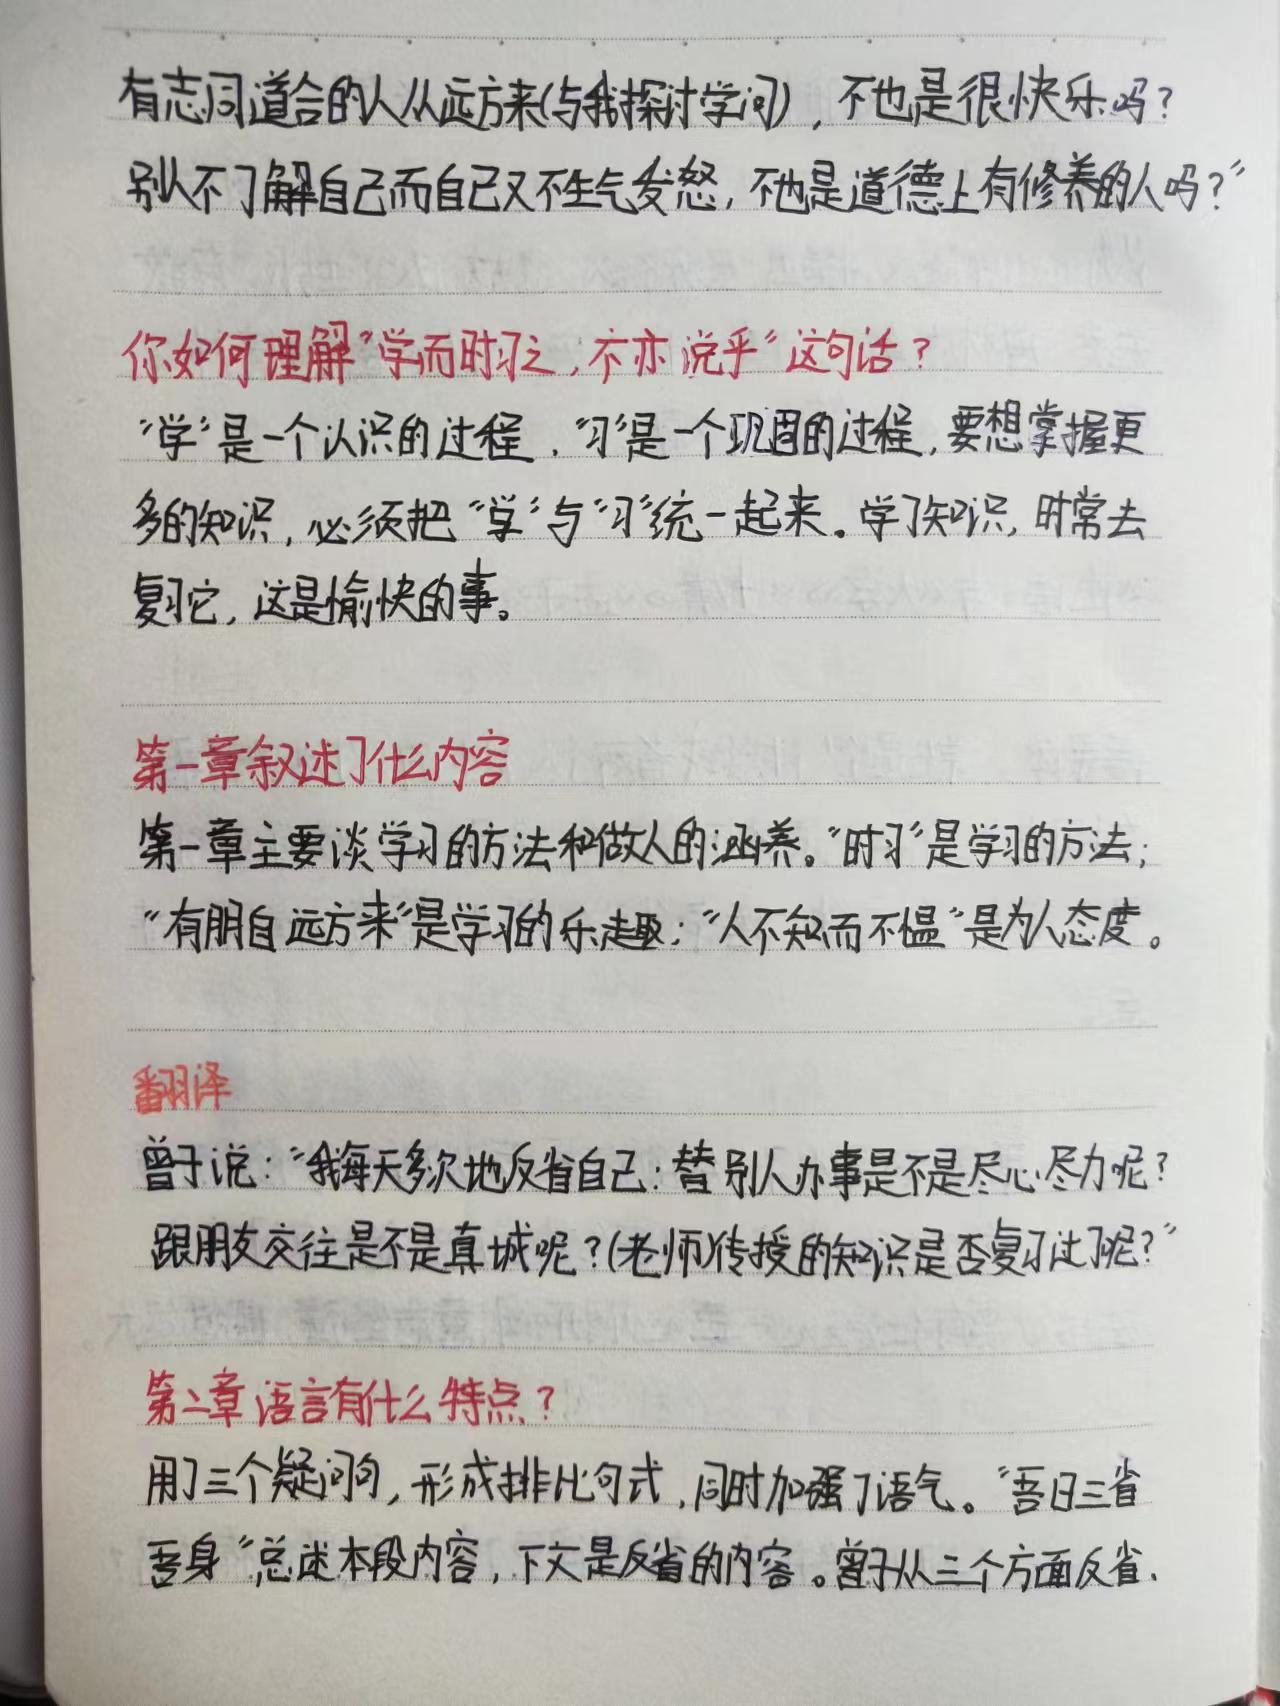 有志同道合的人从远方来(与我探讨学问)，不也是很快乐吗？
别人不了解自己而自己又不生气发怒，不也是道德上有修养的人吗？”
你如何理解“学而时习之，不亦说乎”这句话？
“学”是一个认识的过程，“习”是一个巩固的过程，要想掌握更
多的知识，必须把“学”与“习”统一起来。学了知识，时常去
复习它，这是愉快的事。
第一章叙述了什么内容
第一章主要谈学习的方法和做人的涵养。“时习”是学习的方法；
“有朋自远方来”是学习的乐趣；“人不知而不愠”是为人态度。
翻译
曾子说：“我每天多次地反省自己：替别人办事是不是尽心尽力呢？
跟朋友交往是不是真城呢？(老师)传授的知识是否复习过了呢？”
第二章语言有什么特点？
用了三个疑问句，形成排比句式，同时加强了语气。“吾日三省
吾身”总述本段内容，下文是反省的内容。曾子从三个方面反省.